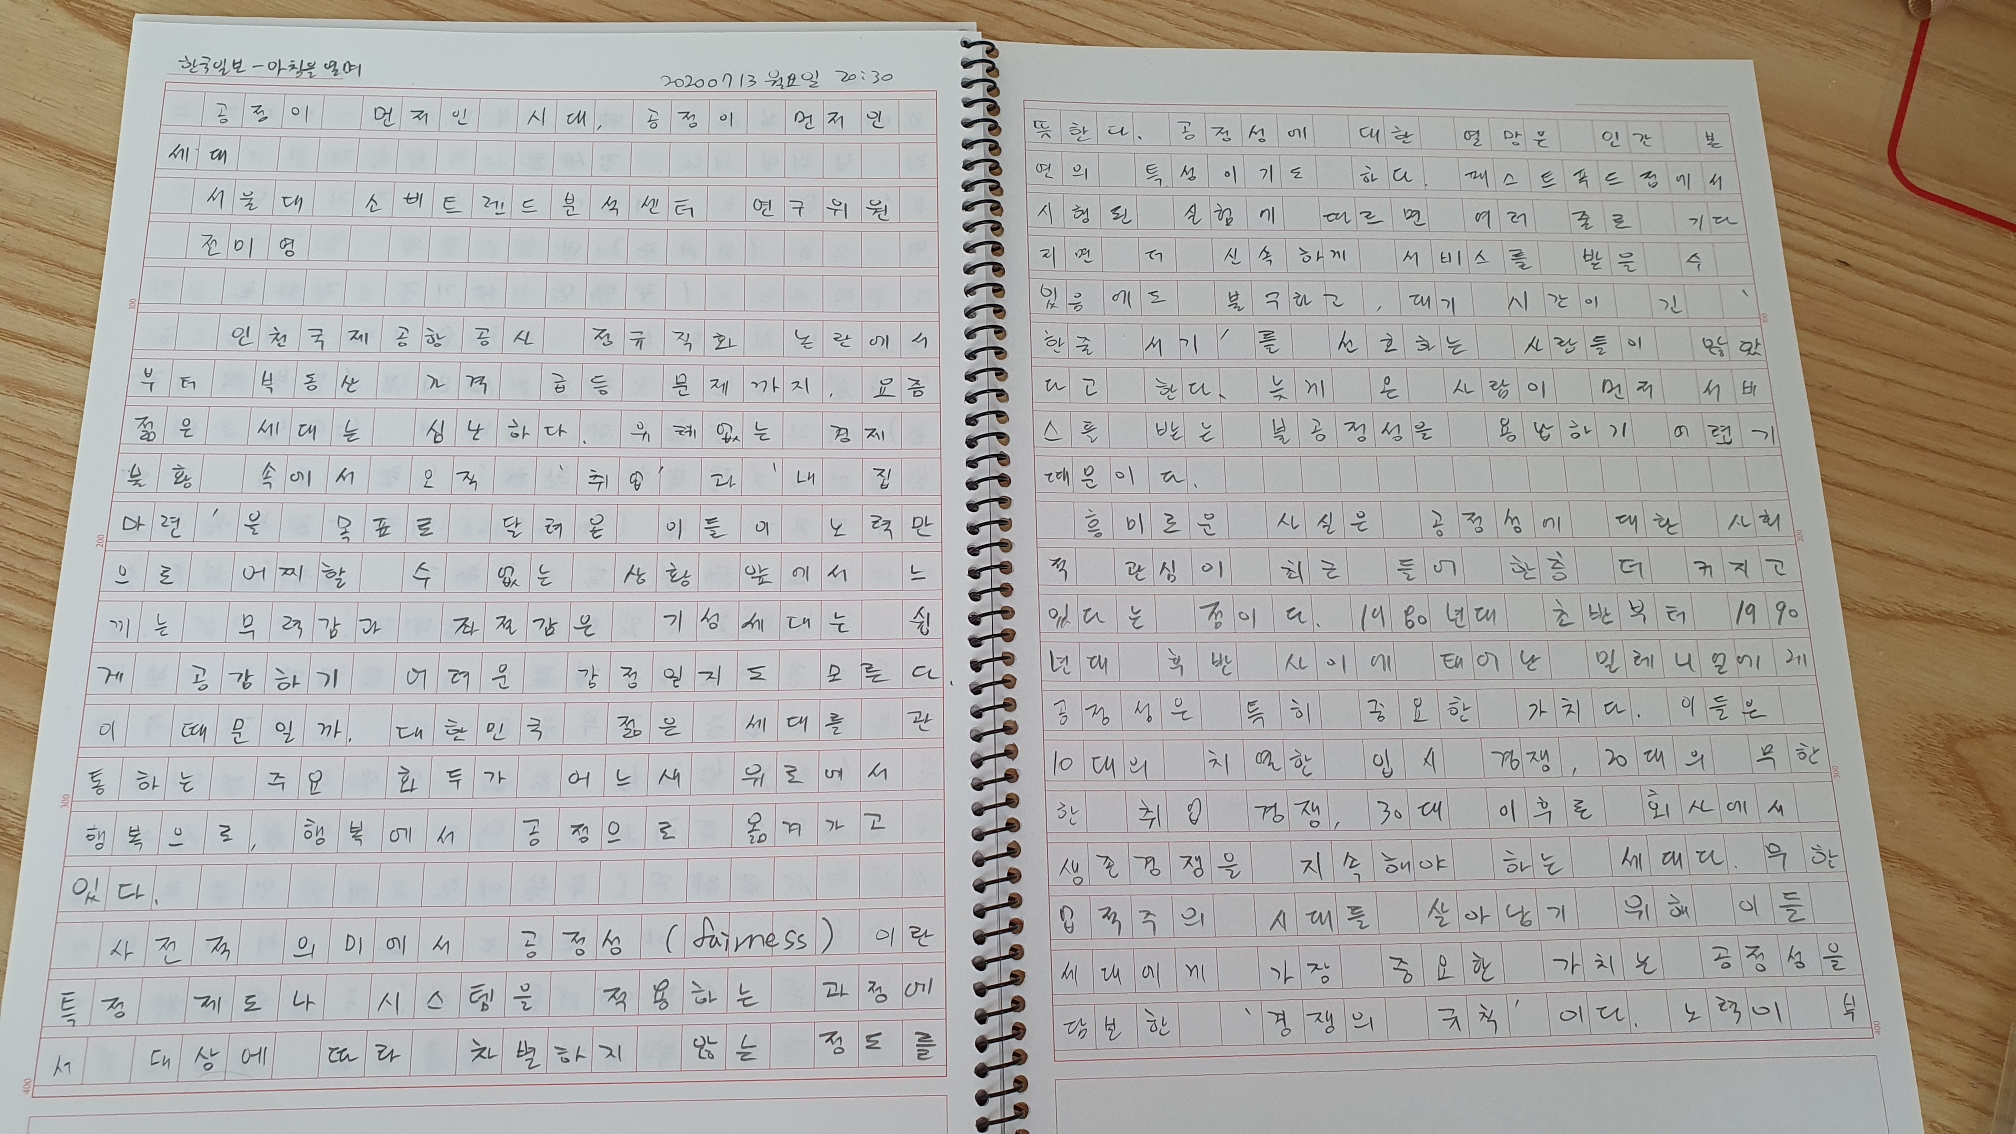 한국일보 - 아침을 열며
20200713 월요일 20:30
공정이 먼저인 시대, 공정이 먼저인
세대
서울대 소비트렌드분석센터 연구위원
전미영
인천국제공항공사 정규직화 논란에서
부터 부동산 가격 급등 문제까지, 요즘
젊은 세대는 심난하다. 유례없는 경제
불황 속에서 오직 '취업'과 '내 집
마련'을 목표로 달려온 이들이 노력만
으로 어찌할 수 없는 상황 앞에서 느
끼는 무력감과 좌절감은 기성세대는 쉽
게 공감하기 어려운 감정일지도 모른다.
이 때문일까. 대한민국 젊은 세대를 관
통하는 주요 화두가 어느새 위로에서
행복으로, 행복에서 공정으로 옮겨가고
있다.
사전적 의미에서 공정성(fairness)이란
특정 제도나 시스템을 적용하는 과정에
서 대상에 따라 차별하지 않는 정도를
뜻한다. 공정성에 대한 열망은 인간 본
연의 특성이기도 하다. 패스트푸드점에서
시행된 실험에 따르면 여러 줄로 기다
리면 더 신속하게 서비스를 받을 수
있음에도 불구하고, 대기 시간이 긴 '
한줄 서기'를 선호하는 사람들이 많았
다고 한다. 늦게 온 사람이 먼저 서비
스를 받는 불공정성을 용납하기 어렵기
때문이다.
흥미로운 사실은 공정성에 대한 사회
적 관심이 최근 들어 한층 더 커지고
있다는 점이다. 1980년대 초반부터 1990
년대 후반 사이에 태어난 밀레니얼에게
공정성은 특히 중요한 가치다. 이들은
10대의 치열한 입시 경쟁, 20대의 무한
한 취업 경쟁, 30대 이후로 회사에서
생존경쟁을 지속해야 하는 세대다. 무한
업적주의 시대를 살아남기 위해 이들
세대에게 가장 중요한 가치는 공정성을
담보한 '경쟁의 규칙'이다. 노력이 부
100
200
300
400
100
200
300
400